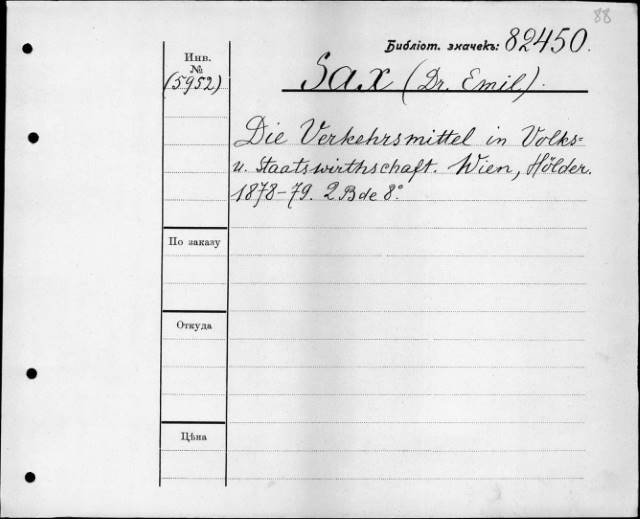 88
Библіот. значекъ: 82450.
Инв.
№
(5952)
Sax (Dr. Emil).
Die Verkehrsmittel in Volks=
u. Staatswirthschaft. Wien, Hölder.
1878-79. 2 Bde 8°.
По заказу
Откуда
Цѣна